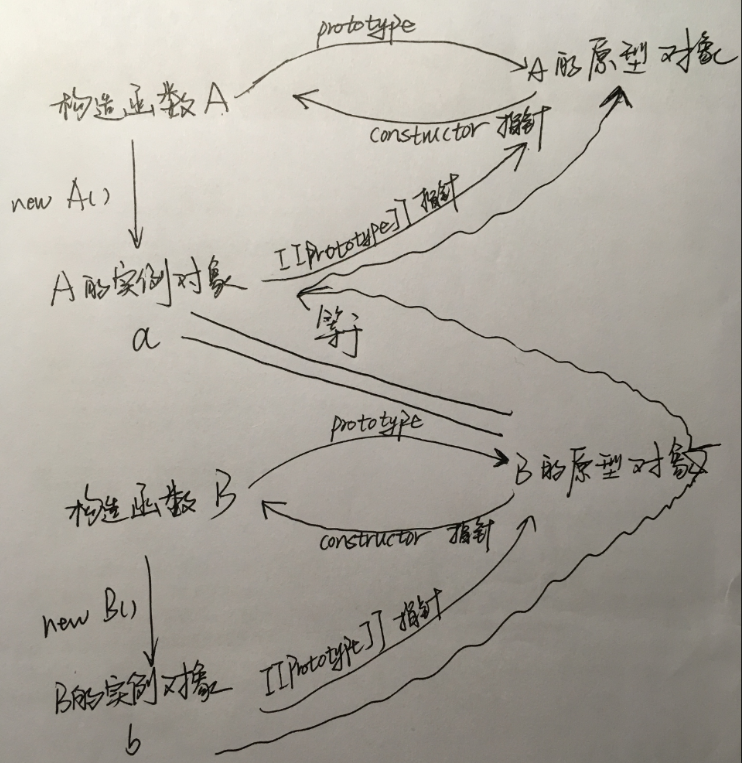 prototype
A的原型对象
构造函数A
constructor 指针
new A()
[[Prototype]] 指针
A的实例对象
等于
a
prototype
B的原型对象
构造函数 B
constructor 指针
new B()
[[Prototype]] 指针
B的实例对象
b